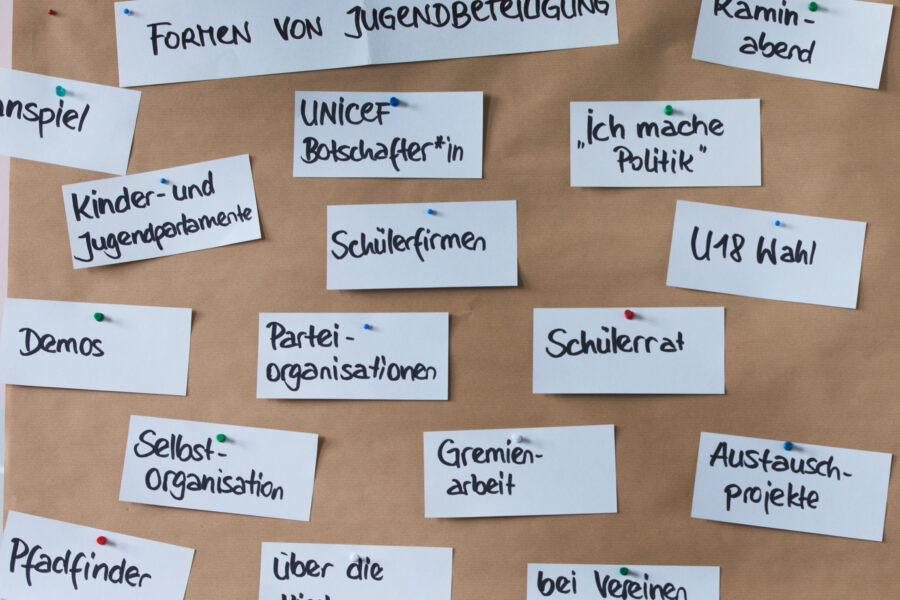 FORMEN VON JUGENDBETEILIGUNG
Kamin-
abend
anspiel
UNICEF
Botschafter*in
„Ich mache
Politik"
Kinder- und
Jugendparlamente
Schülerfirmen
U18 Wahl
Demos
Partei-
organisationen
Schülerrat
Selbst-
organisation
Gremien-
arbeit
Austausch-
projekte
Pfadfinder
über die
bei Vereinen